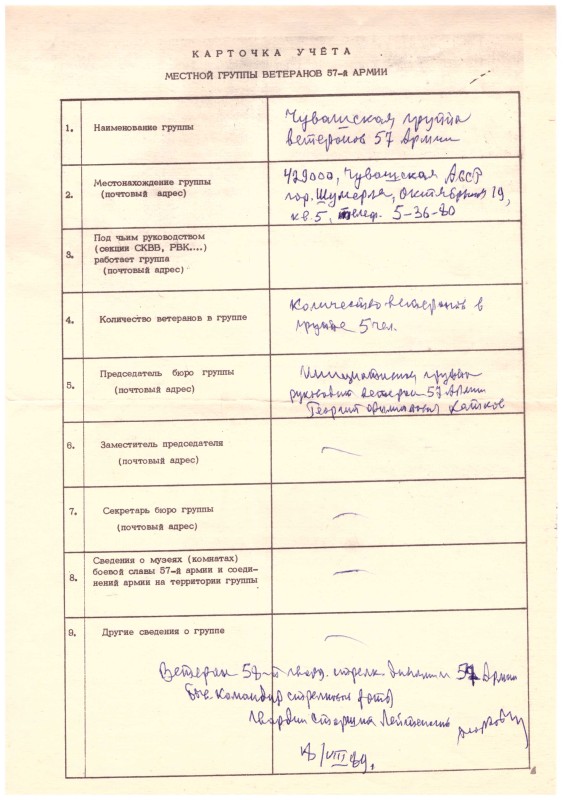 КАРТОЧКА УЧЁТА
МЕСТНОЙ ГРУППЫ ВЕТЕРАНОВ 57-й АРМИИ
1. Наименование группы
Чувашская группа
ветеранов 57 Армии
2. Местонахождение группы
(почтовый адрес)
429000, Чувашская АССР
гор. Шумерля, Октябрьская 19,
кв. 5, телеф. 5-36-80
3. Под чьим руководством
(секции СКВВ, РВК....)
работает группа
(почтовый адрес)
4. Количество ветеранов в группе
Количество ветеранов в
группе 5 чел.
5. Председатель бюро группы
(почтовый адрес)
группы
ветеран 57 Армии
Георгий
6. Заместитель председателя
(почтовый адрес)
7. Секретарь бюро группы
(почтовый адрес)
8. Сведения о музеях (комнатах)
боевой славы 57-й армии и соеди-
нений армии на территории группы
9. Другие сведения о группе
Ветеран гвард. стрелк. дивизии 57 Армии
Командир стрелковой роты
Гвардии Старший Лейтенант
VIII 89.